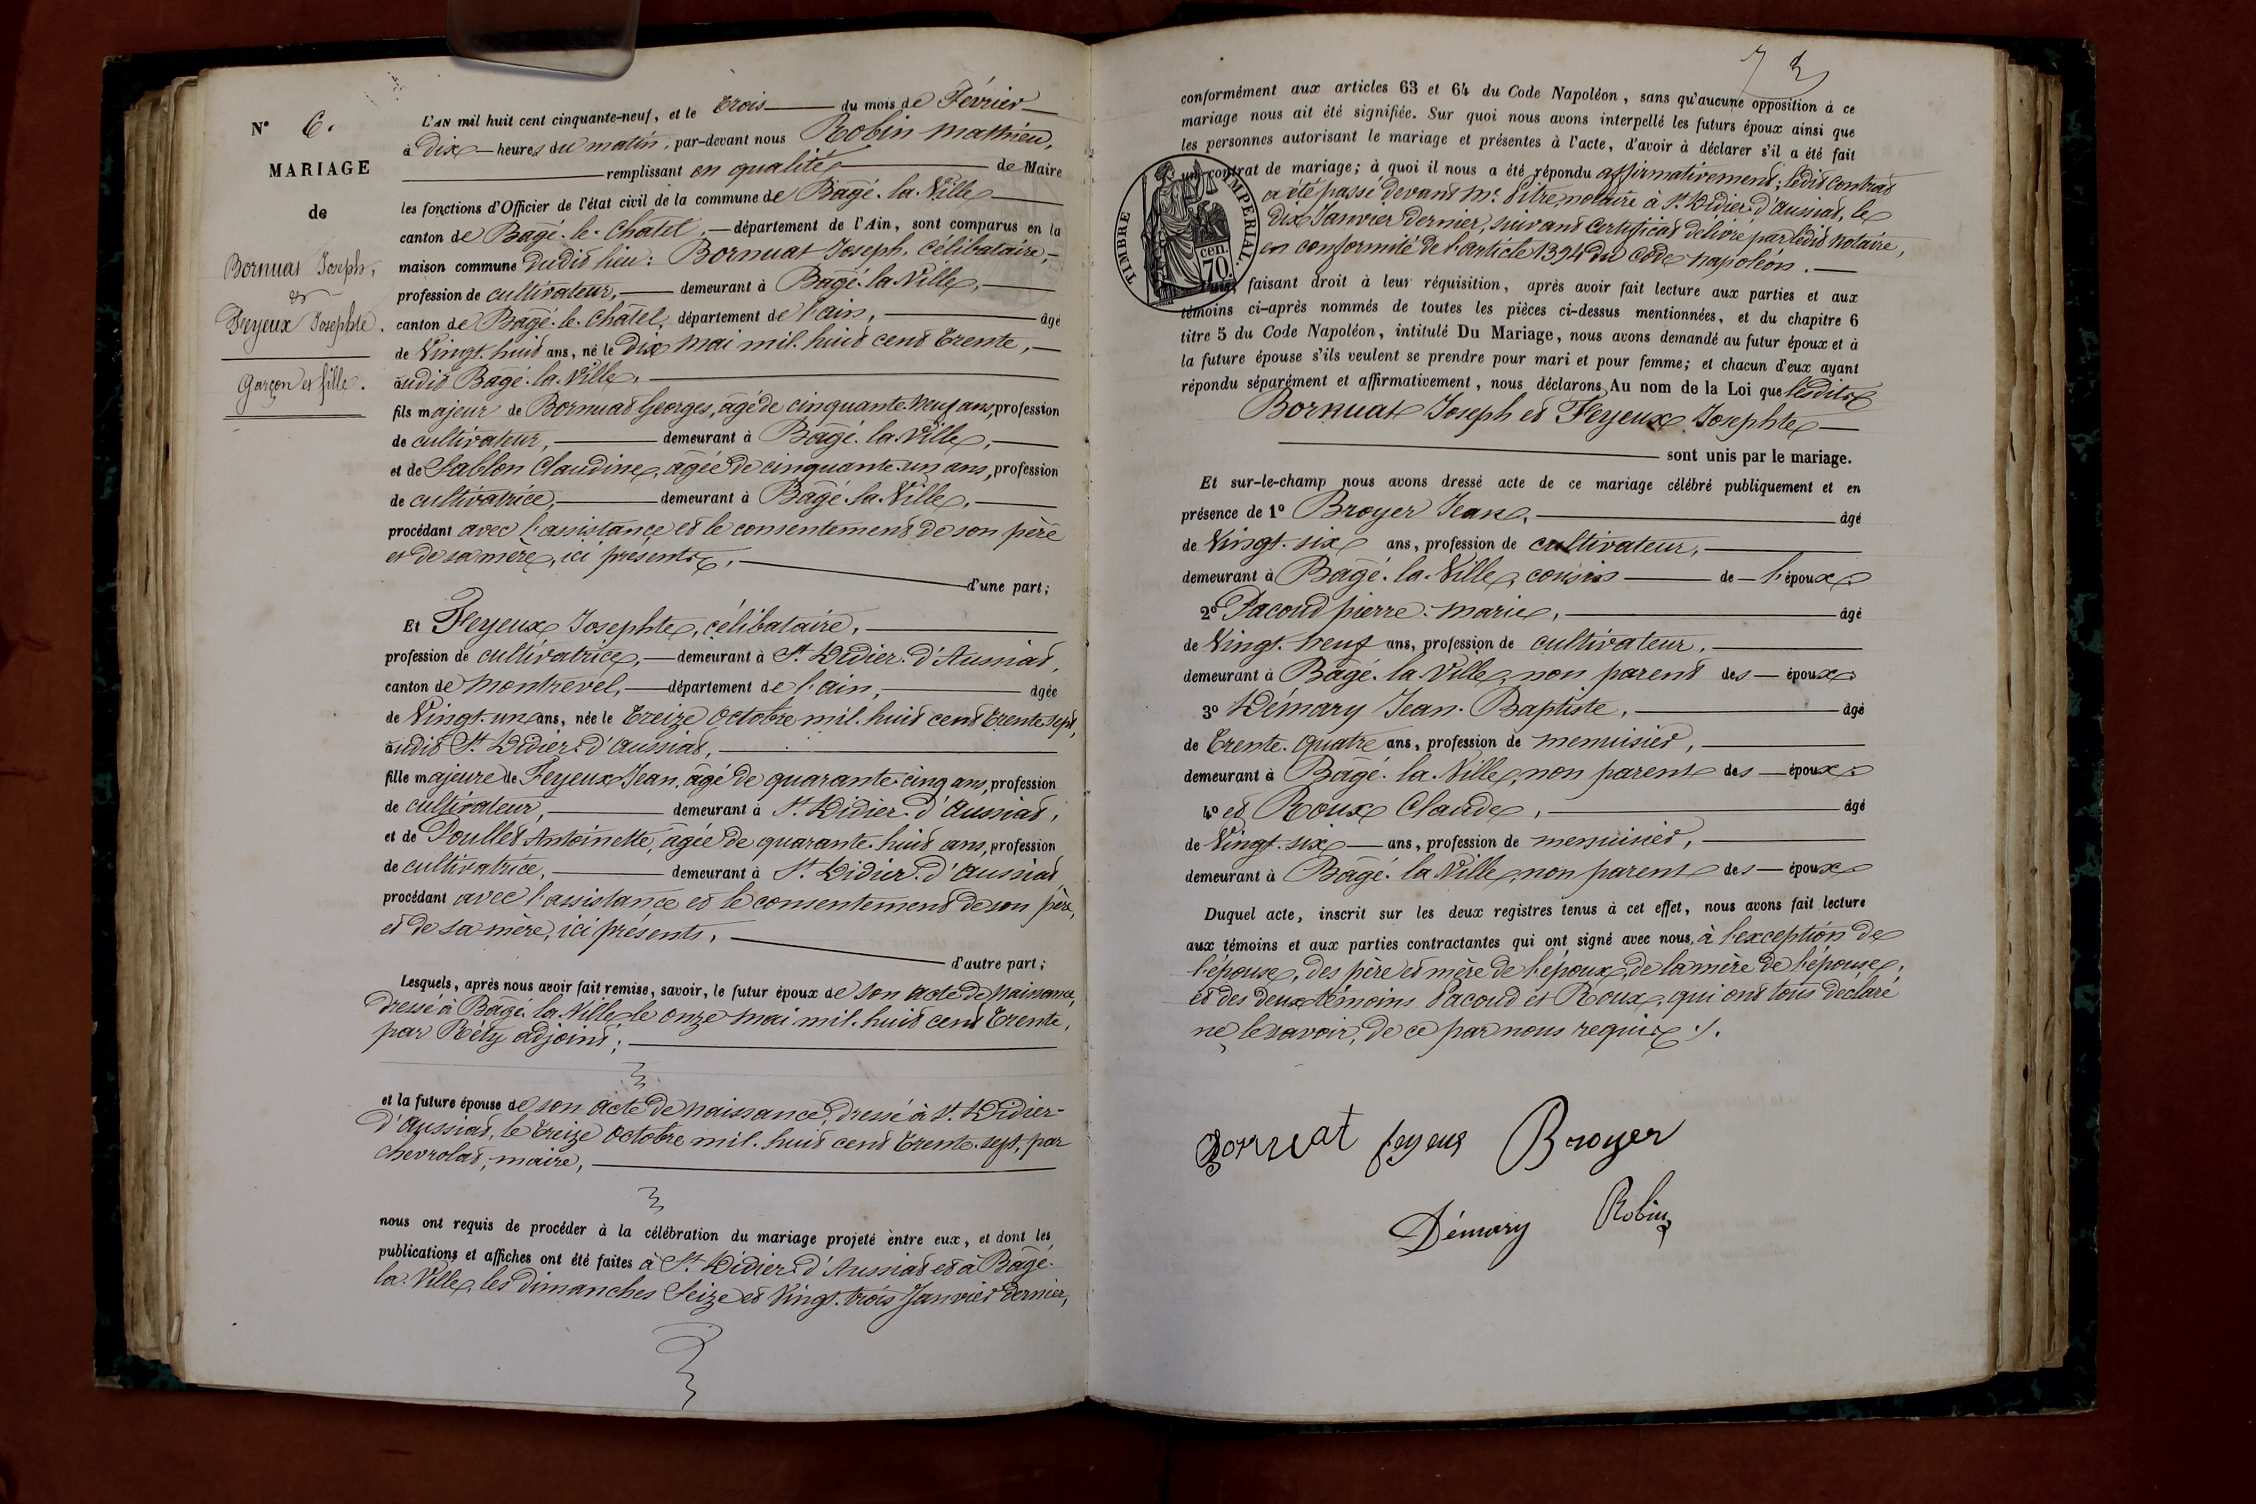 N° 6.
MARIAGE
de
Bornuat Joseph,
et
Feyeux Josephte.
Garçon et fille.
L'AN mil huit cent cinquante-neuf, et le trois du mois de Février
à dix heures du matin, par-devant nous Robin Mathieu,
remplissant en qualité de Maire
les fonctions d'Officier de l'état civil de la commune de Bâgé-la-Ville
canton de Bâgé-le-Châtel, département de l'Ain, sont comparus en la
maison commune dudit lieu: Bornuat Joseph, célibataire,
profession de cultivateur, demeurant à Bâgé-la-Ville,
canton de Bâgé-le-Châtel, département de l'ain, âgé
de Vingt-huit ans, né le dix mai mil-huit cent trente,
audit Bâgé-la-Ville,
fils majeur de Bornuat Georges, âgé de cinquante-neuf ans, profession
de cultivateur, demeurant à Bâgé-la-Ville,
et de Sablon Claudine, âgée de cinquante-un ans, profession
de cultivatrice, demeurant à Bâgé-la-Ville,
procédant avec l'assistance et le consentement de son père
et de sa mère, ici présents,
d'une part;
Et Feyeux Josephte, célibataire,
profession de cultivatrice, demeurant à St Didier-d'Aussiat,
canton de Montrevel, département de l'ain, âgée
de Vingt-un ans, née le treize octobre mil-huit cent trente sept,
audit St Didier-d'aussiat,
fille majeure de Feyeux Jean, âgé de quarante-cinq ans, profession
de cultivateur, demeurant à St Didier-d'Aussiat,
et de Poullet Antoinette, âgée de quarante-huit ans, profession
de cultivatrice, demeurant à St Didier-d'aussiat
procédant avec l'assistance et le consentement de son père,
et de sa mère, ici présents,
d'autre part;
Lesquels, après nous avoir fait remise, savoir, le futur époux de son acte de naissance,
dressé à Bâgé-la-Ville le onze mai mil-huit cent trente,
par Réty adjoint;
et la future épouse de son acte de naissance, dressé à St Didier-
d'Aussiat, le treize octobre mil-huit cent trente-sept, par
Chevrolat, maire,
nous ont requis de procéder à la célébration du mariage projeté entre eux, et dont les
publications et affiches ont été faites à St Didier-d'Aussiat et à Bâgé-
la-Ville, les dimanches Seize et Vingt-trois Janvier dernier,
73
conformément aux articles 63 et 64 du Code Napoléon, sans qu'aucune opposition à ce
mariage nous ait été signifiée. Sur quoi nous avons interpellé les futurs époux ainsi que
les personnes autorisant le mariage et présentes à l'acte, d'avoir à déclarer s'il a été fait
un contrat de mariage; à quoi il nous a été répondu affirmativement; ledit contrat
a été passé devant Me Pitre, notaire à St Didier-d'aussiat, le
dix Janvier dernier, suivant certificat délivré par ledit notaire,
en conformité de l'article 1394 du Code Napoléon.
TIMBRE IMPERIAL.
70 cen.
Puis, faisant droit à leur réquisition, après avoir fait lecture aux parties et aux
témoins ci-après nommés de toutes les pièces ci-dessus mentionnées, et du chapitre 6
titre 5 du Code Napoléon, intitulé Du Mariage, nous avons demandé au futur époux et à
la future épouse s'ils veulent se prendre pour mari et pour femme; et chacun d'eux ayant
répondu séparément et affirmativement, nous déclarons Au nom de la Loi que lesdits
Bornuat Joseph et Feyeux Josephte
sont unis par le mariage.
Et sur-le-champ nous avons dressé acte de ce mariage célébré publiquement et en
présence de 1° Broyer Jean, âgé
de Vingt-six ans, profession de cultivateur,
demeurant à Bâgé-la-Ville, cousin de l'époux
2° Pacoud pierre-marie, âgé
de Vingt-neuf ans, profession de cultivateur,
demeurant à Bâgé-la-Ville, non parent des époux
3° Démary Jean-Baptiste, âgé
de Trente-quatre ans, profession de menuisier,
demeurant à Bâgé-la-Ville, non parent des époux
4° et Roux Claude, âgé
de Vingt-six ans, profession de menuisier,
demeurant à Bâgé-la-Ville, non parent des époux
Duquel acte, inscrit sur les deux registres tenus à cet effet, nous avons fait lecture
aux témoins et aux parties contractantes qui ont signé avec nous, à l'exception de
l'épouse, des père et mère de l'époux, de la mère de l'épouse,
et des deux témoins Pacoud et Roux, qui ont tous déclaré
ne le savoir, de ce par nous requis ./.
Bornuat feyeux Broyer
Démary Robin